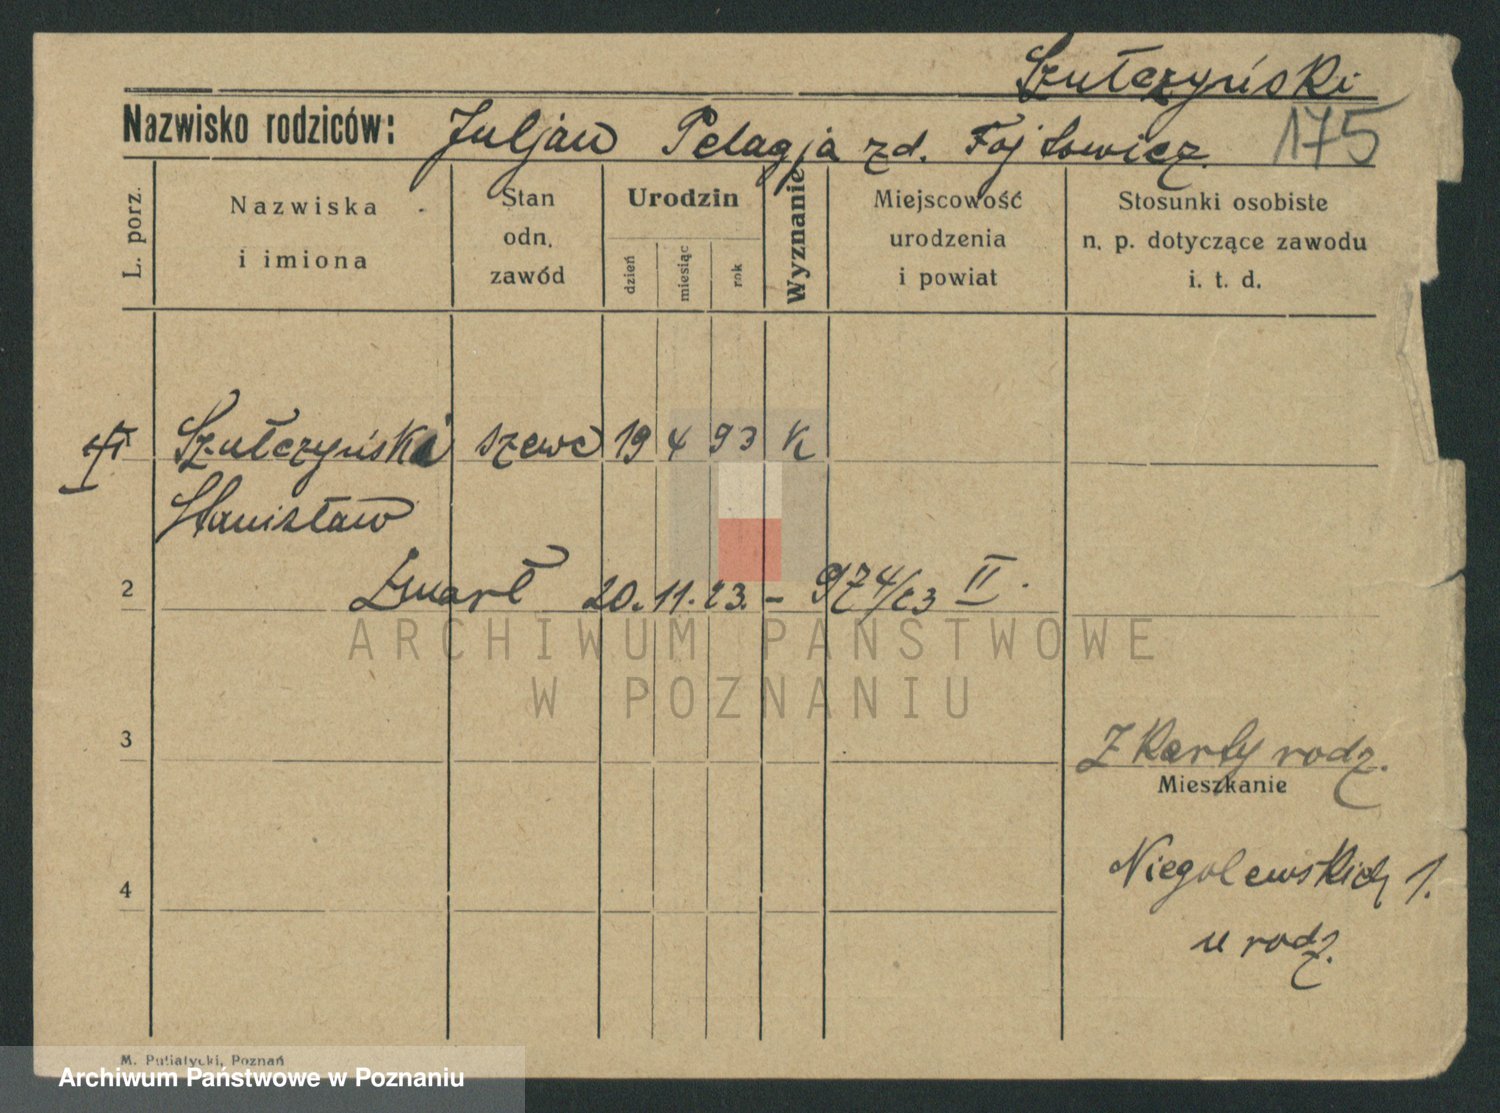 Szułczyński
Nazwisko rodziców: Juljan Pelagja zd. Fojtowicz 175
L. porz.
Nazwiska
i imiona
Stan
odn.
zawód
Urodzin
dzień
miesiąc
rok
Wyznanie
Miejscowość
urodzenia
i powiat
Stosunki osobiste
n. p. dotyczące zawodu
i. t. d.
Szułczyński szewc 19 4 93 K
Stanisław
2 Zmarł 20.11.23. - 974/23 II.
ARCHIWUM PAŃSTWOWE
W POZNANIU
3 Z Karty rodz.
Mieszkanie
Niegolewskich 1.
4
u rodz.
M. Putiatycki, Poznań
Archiwum Państwowe w Poznaniu